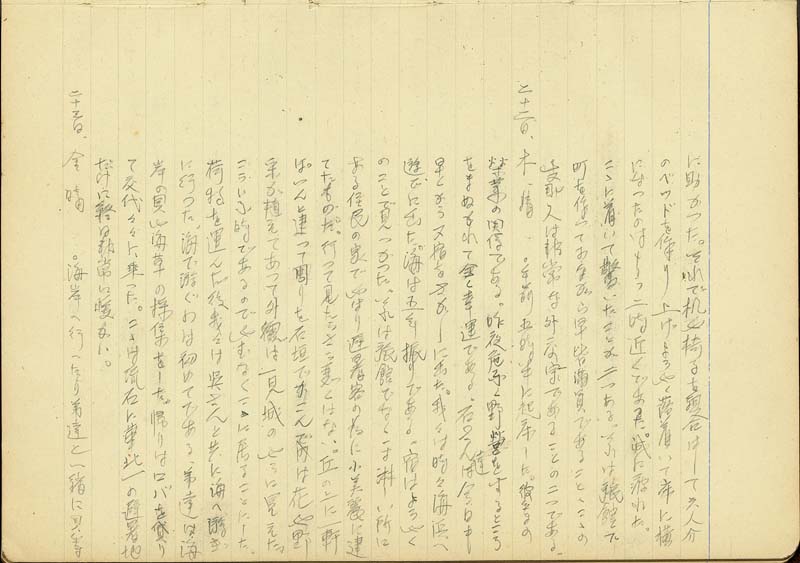 に助かつた。それで机や椅子を集合はして六人分
のベッドを作り上げ、ようやく落着いて床に横
になつたのはもう二時近くであつた。誠に疲れた。
ここに着いて驚いたことが二つある。それは旅館で
町を作つて なが 早 皆満員であること、ここの
支那人は非常な外 であることの二つである。
二十二日、木、晴、。午前五時半に起床した。 の
営業の関係である。昨夜危ふく野営をするところ
をまぬかれて全く幸運である。 さんは今日も
早くから又宿をさがしに出た。我々は時々海浜へ
遊びに出た。海は五年振りである。宿はようやく
のことで見つかつた。それは旅館でなく一寸淋しい所に
ある住民の家でやはり避暑客の為に小美麗に建
てたものだ。行つて見たところ悪くはない。丘の上に一軒
ぽつんと建つて周りを石垣でかこんで庭は花や野
菜が植えてあつて外観は一見城のやうに見えた。
こういふ的であるのでやむなくここに居ることにした。
荷物を運んだ後我々は呉さんと共に海へ游ぎ
に行つた。海で游ぐのは初めてである。弟達は海
岸の貝や海草の採集をした。帰りはロバを貸り
て交代々々に乗つた。ここは流石に華北一の避暑地
だけに 非常に 。
二十三日、金、晴、。海岸へ行つたり弟達と一緒に貝